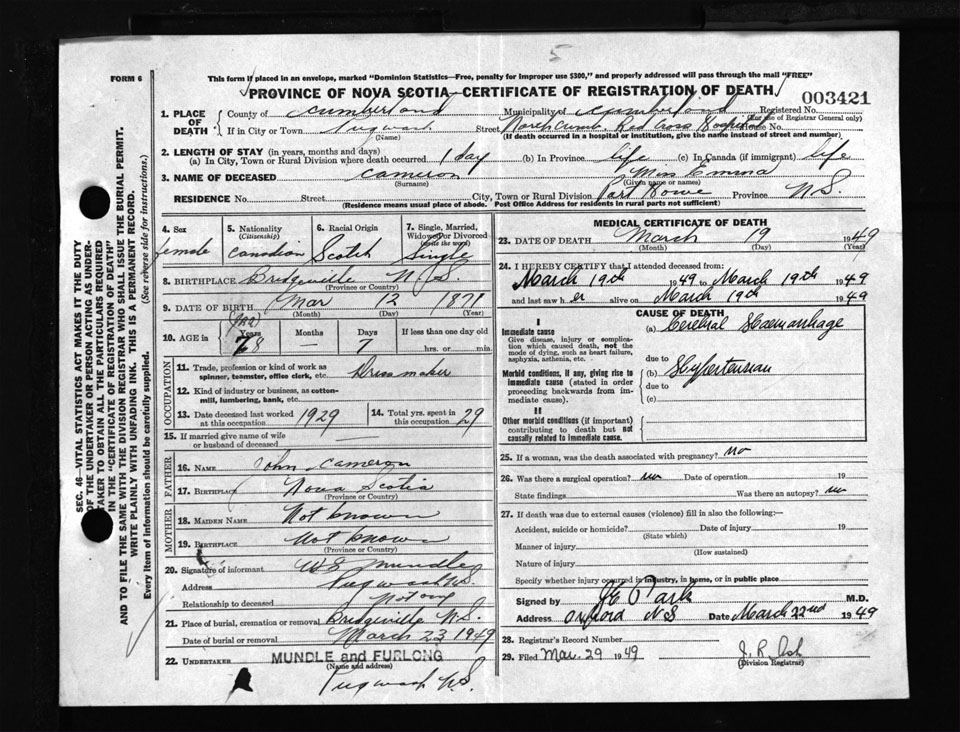 5
FORM 6
This form if placed in an envelope, marked "Dominion Statistics—Free, penalty for improper use $300," and properly addressed will pass through the mail "FREE"
PROVINCE OF NOVA SCOTIA—CERTIFICATE OF REGISTRATION OF DEATH
003421
1. PLACE OF DEATH County of Cumberland Municipality of Cumberland Registered No.
(For use of Registrar General only)
If in City or Town Pugwash Street Red Cross House No.
(Name) (If death occurred in a hospital or institution, give the name instead of street and number)
2. LENGTH OF STAY (in years, months and days)
(a) In City, Town or Rural Division where death occurred 1 day (b) In Province life (c) In Canada (if immigrant) life
3. NAME OF DECEASED Cameron Miss Emma
(Surname) (Given name or names)
RESIDENCE No. Street City, Town or Rural Division Port Howe Province N.S.
(Residence means usual place of abode. Post Office Address for residents in rural parts not sufficient)
4. Sex 5. Nationality (Citizenship) 6. Racial Origin 7. Single, Married, Widowed or Divorced (write the word)
female Canadian Scotch Single
8. BIRTHPLACE Bridgeville N.S
(Province or Country)
9. DATE OF BIRTH Mar 12 1871
(Month) (Day) (Year)
10. AGE in Years Months Days If less than one day old
78 — 7 hrs. or min.
OCCUPATION
11. Trade, profession or kind of work as spinner, teamster, office clerk, etc. Dressmaker
12. Kind of industry or business, as cotton-mill, lumbering, bank, etc.
13. Date deceased last worked at this occupation 1929 14. Total yrs. spent in this occupation 29
15. If married give name of wife or husband of deceased
FATHER
16. NAME John Cameron
17. BIRTHPLACE Nova Scotia
(Province or Country)
MOTHER
18. MAIDEN NAME Not known
19. BIRTHPLACE Not known
(Province or Country)
20. Signature of informant W.S. Mundle
Address Pugwash N.S.
Relationship to deceased Not any
21. Place of burial, cremation or removal Bridgeville N.S.
Date of burial or removal March 23 1949
22. UNDERTAKER MUNDLE and FURLONG
(Name and address)
Pugwash N.S.
MEDICAL CERTIFICATE OF DEATH
23. DATE OF DEATH March 19 1949
(Month) (Day) (Year)
24. I HEREBY CERTIFY that I attended deceased from:
March 19th 1949 to March 19th 1949
and last saw h er alive on March 19th 1949
CAUSE OF DEATH
I
Immediate cause (a) Cerebral Haemorrhage
Give disease, injury or complication which caused death, not the mode of dying, such as heart failure, asphyxia, asthenia, etc.
due to
Morbid conditions, if any, giving rise to immediate cause (stated in order proceeding backwards from immediate cause). (b) Hypertension
due to
(c)
II
Other morbid conditions (if important) contributing to death but not causally related to immediate cause.
25. If a woman, was the death associated with pregnancy? no
26. Was there a surgical operation? no Date of operation 19
State findings Was there an autopsy? no
27. If death was due to external causes (violence) fill in also the following:—
Accident, suicide or homicide? Date of injury 19
(State which)
Manner of injury
(How sustained)
Nature of injury
Specify whether injury occurred in industry, in home, or in public place
Signed by J E Park M.D.
Address Oxford N S Date March 22nd 1949
28. Registrar's Record Number
29. Filed Mar. 29 1949 J. R. Ash
(Division Registrar)
SEC. 46—VITAL STATISTICS ACT MAKES IT THE DUTY
OF THE UNDERTAKER OR PERSON ACTING AS UNDER-
TAKER TO OBTAIN ALL THE PARTICULARS REQUIRED
IN THE "CERTIFICATE OF REGISTRATION OF DEATH"
AND TO FILE THE SAME WITH THE DIVISION REGISTRAR WHO SHALL ISSUE THE BURIAL PERMIT.
WRITE PLAINLY WITH UNFADING INK. THIS IS A PERMANENT RECORD.
Every item of information should be carefully supplied. (See reverse side for instructions.)